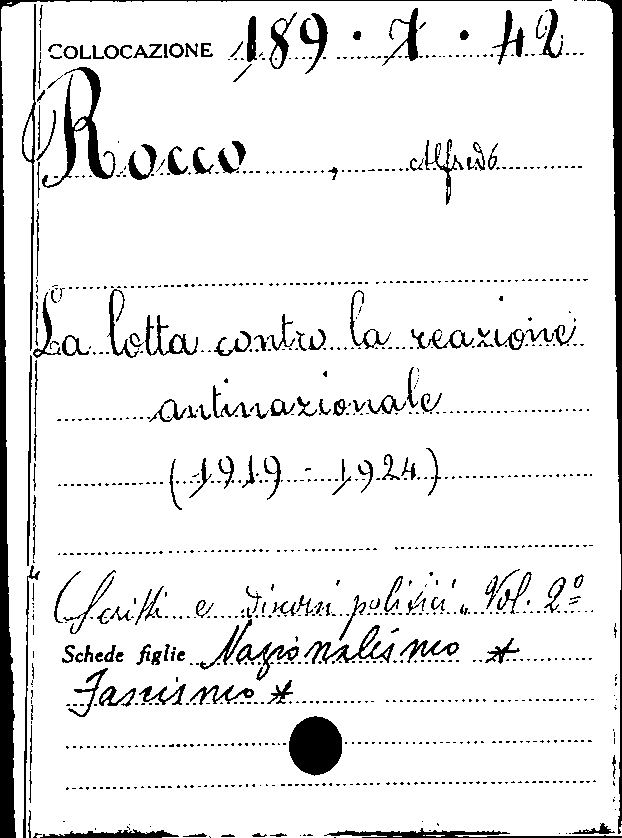 COLLOCAZIONE 189 · 7 · 42
Rocco, Alfredo
La lotta contro la reazione
antinazionale
(1919 - 1924)
(Scritti e discorsi politici" Vol. 2º
Schede figlie Nazionalismo *
Fascismo *